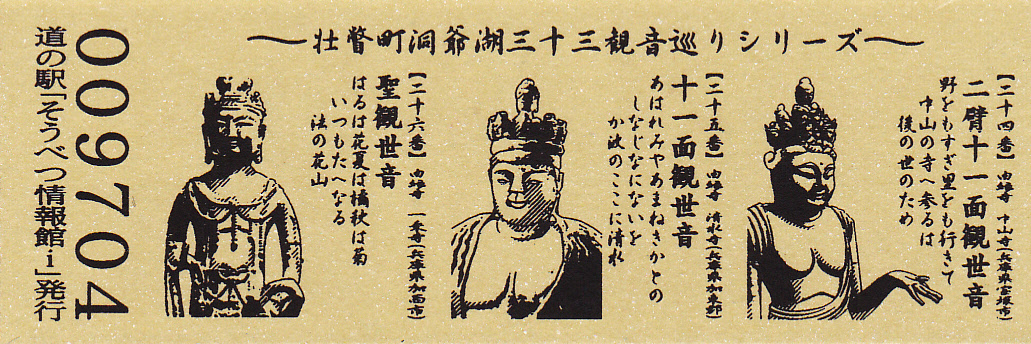 〜壮瞥町洞爺湖三十三観音巡りシリーズ〜
【二十四番】由緒寺 中山寺(兵庫県宝塚市)
二臂十一面観世音
野をもすぎ里をも行きて
中山の寺へ参るは
後の世のため
【二十五番】由緒寺 清水寺(兵庫県加東郡)
十一面観世音
あはれみやあまねきかどの
しなじなになにないを
か波のここに清水
【二十六番】由緒寺 一乗寺(兵庫県加西市)
聖観世音
はるは花夏は橘秋は菊
いつもたへなる
法の花山
009704
道の駅「そうべつ情報館i」発行